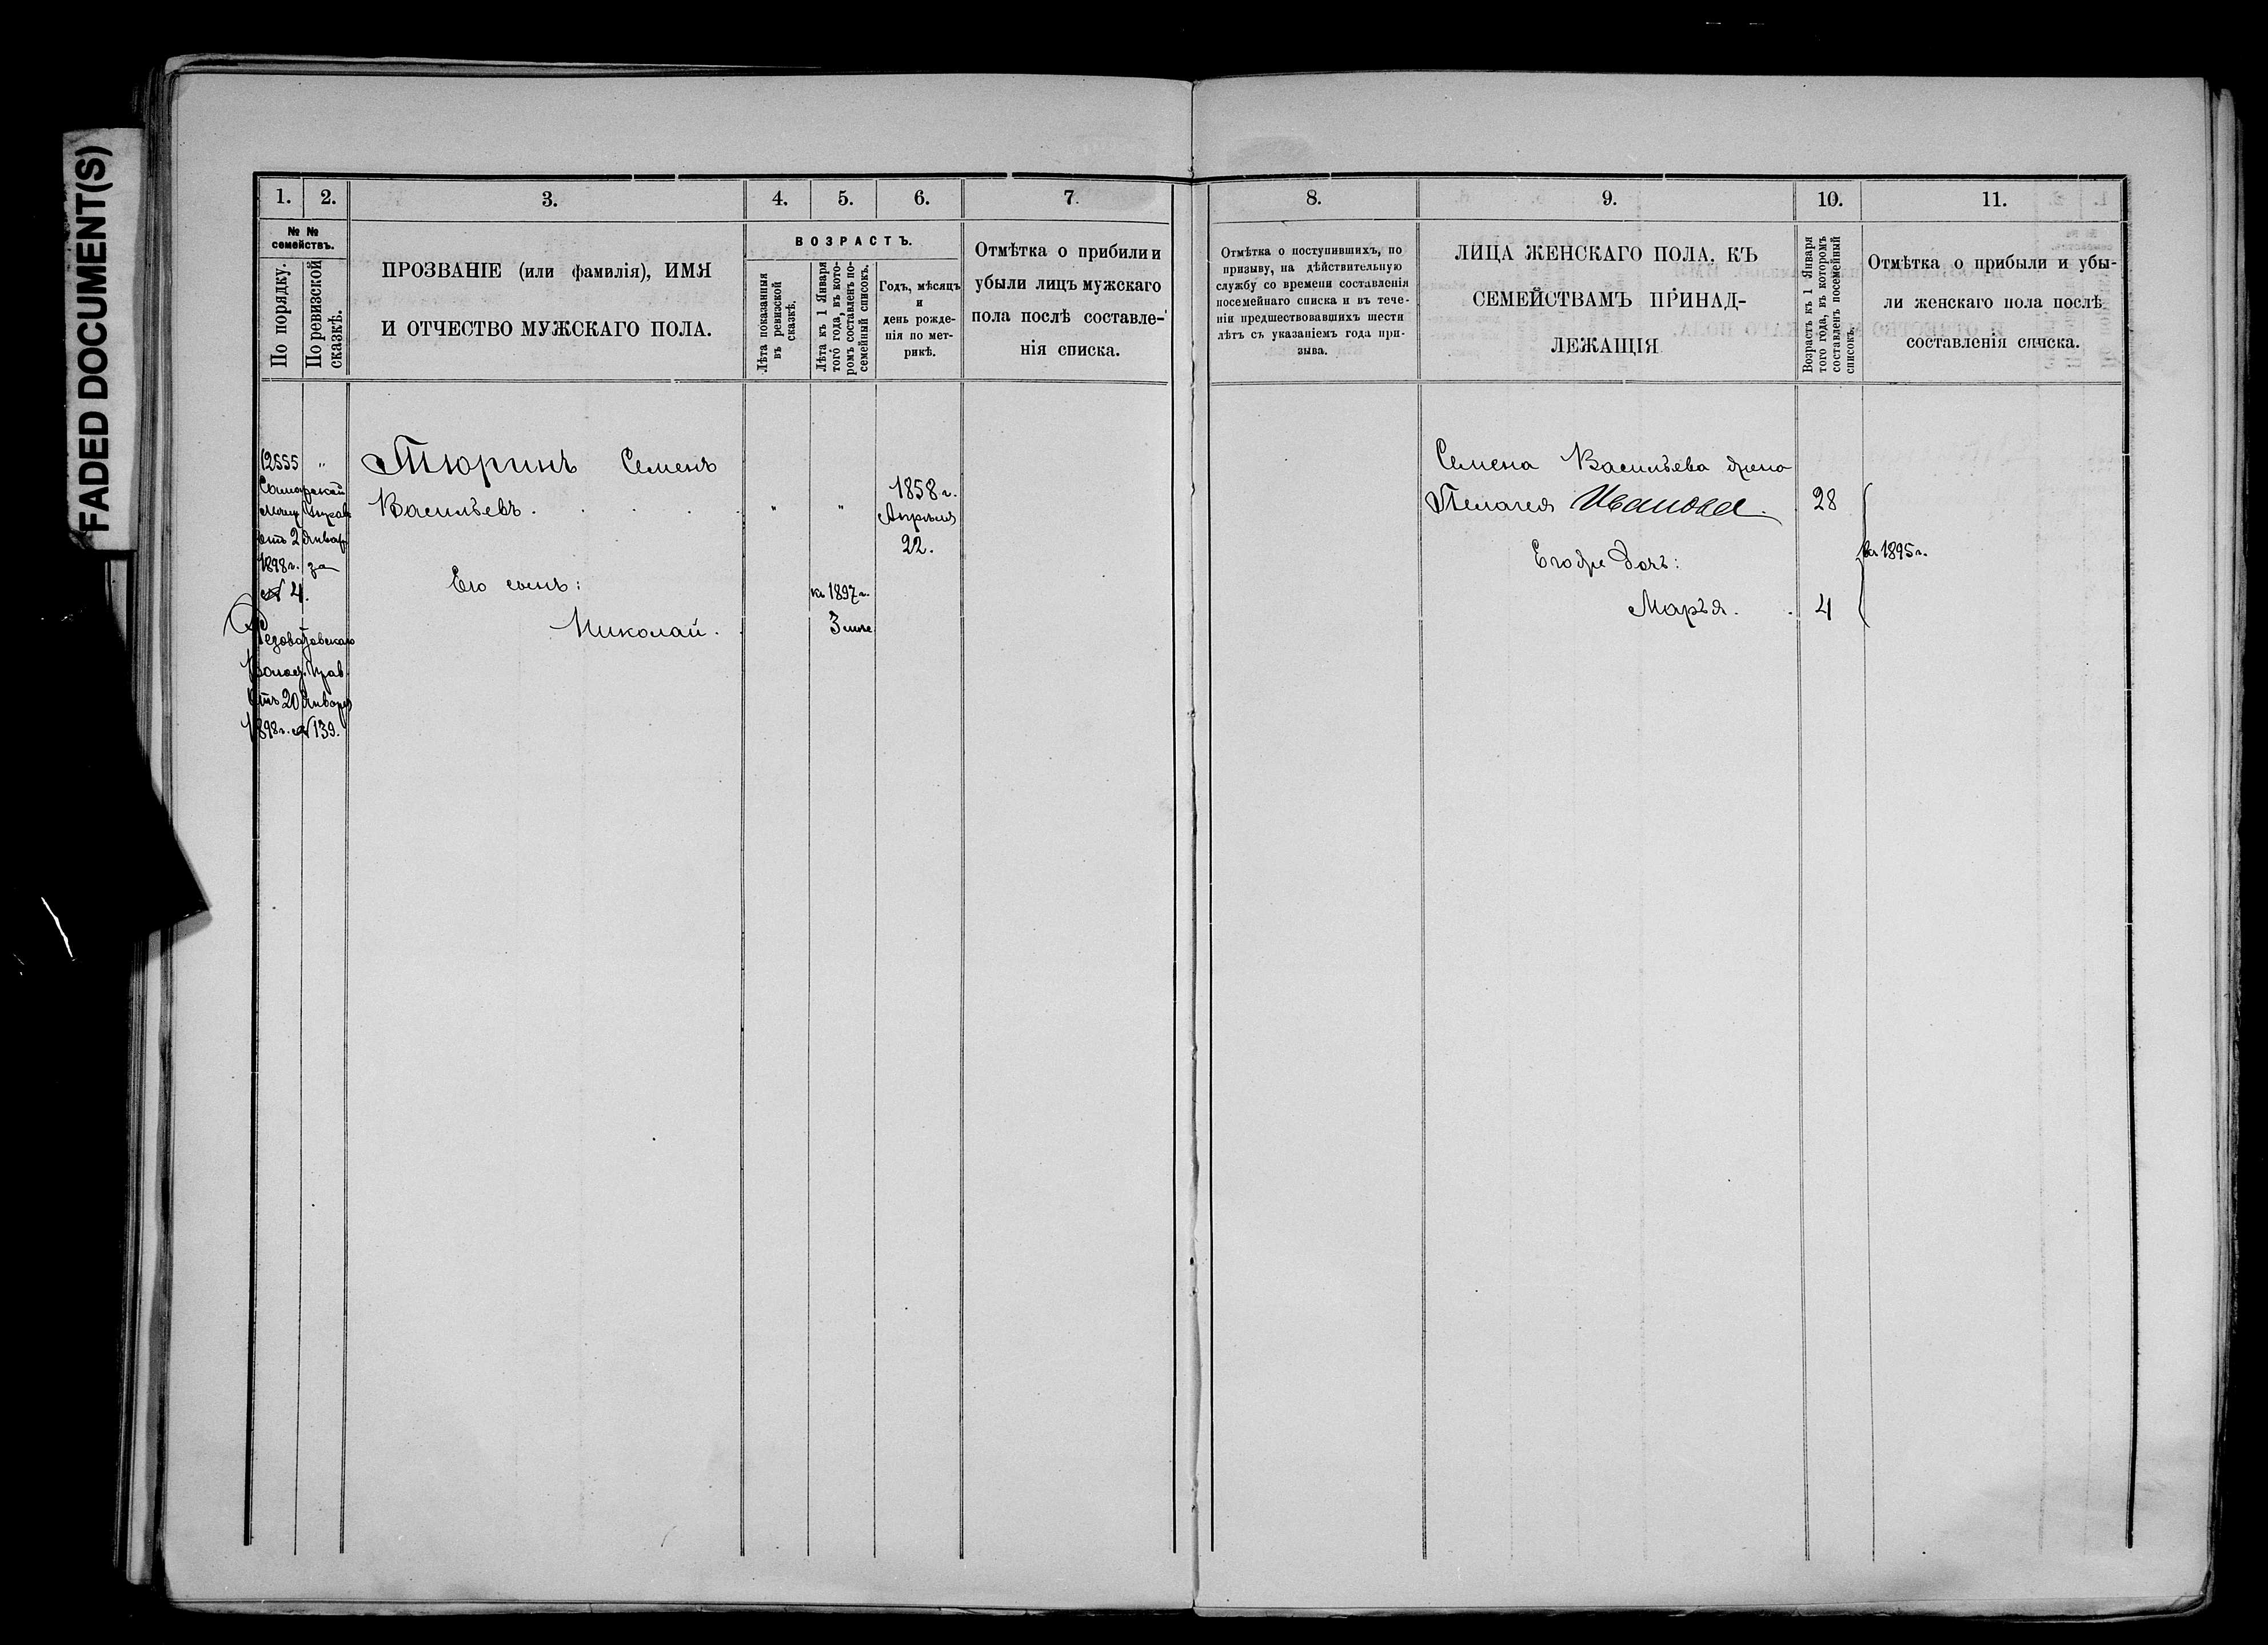 FADED DOCUMENT(S)
1. 2. 3. 4. 5. 6. 7.
№ № семействъ.
По порядку.
По ревизской сказкѣ.
ПРОЗВАНІЕ (или фамилія), ИМЯ
И ОТЧЕСТВО МУЖСКАГО ПОЛА.
ВОЗРАСТЪ.
Лѣта показанныя
въ ревизской
сказкѣ.
Лѣта къ 1 Января
того года, въ кото-
ромъ составленъ по-
семейный списокъ.
Годъ, мѣсяцъ
и
день рожде-
нія по мет-
рикѣ.
Отмѣтка о прибили и
убыли лицъ мужскаго
пола послѣ составле-
нія списка.
12555 "
Самарской
Мѣщ. Управ.
отъ 2 Январ.
1898 г. за
№ 4.
Волос. Прав.
отъ 20 Января
1898 г. № 139.
Тюринъ Семенъ
Васильевъ . . . . . " "
1858 г.
Апрѣля
22.
Его сынъ:
Николай.
къ 1897 г.
3
8. 9. 10. 11.
Отмѣтка о поступившихъ, по
призыву, на дѣйствительную
службу со времени составленія
посемейнаго списка и въ тече-
ніи предшествовавшихъ шести
лѣтъ съ указаніемъ года при-
зыва.
ЛИЦА ЖЕНСКАГО ПОЛА, КЪ
СЕМЕЙСТВАМЪ ПРИНАД-
ЛЕЖАЩІЯ
Возрастъ къ 1 Января
того года, въ которомъ
составленъ посемейный
списокъ.
Отмѣтка о прибыли и убы-
ли женскаго пола послѣ
составленія списка.
Семена Васильева жена
Пелагея Иванова. 28
Его же дочь:
Марья. . 4
къ 1895 г.